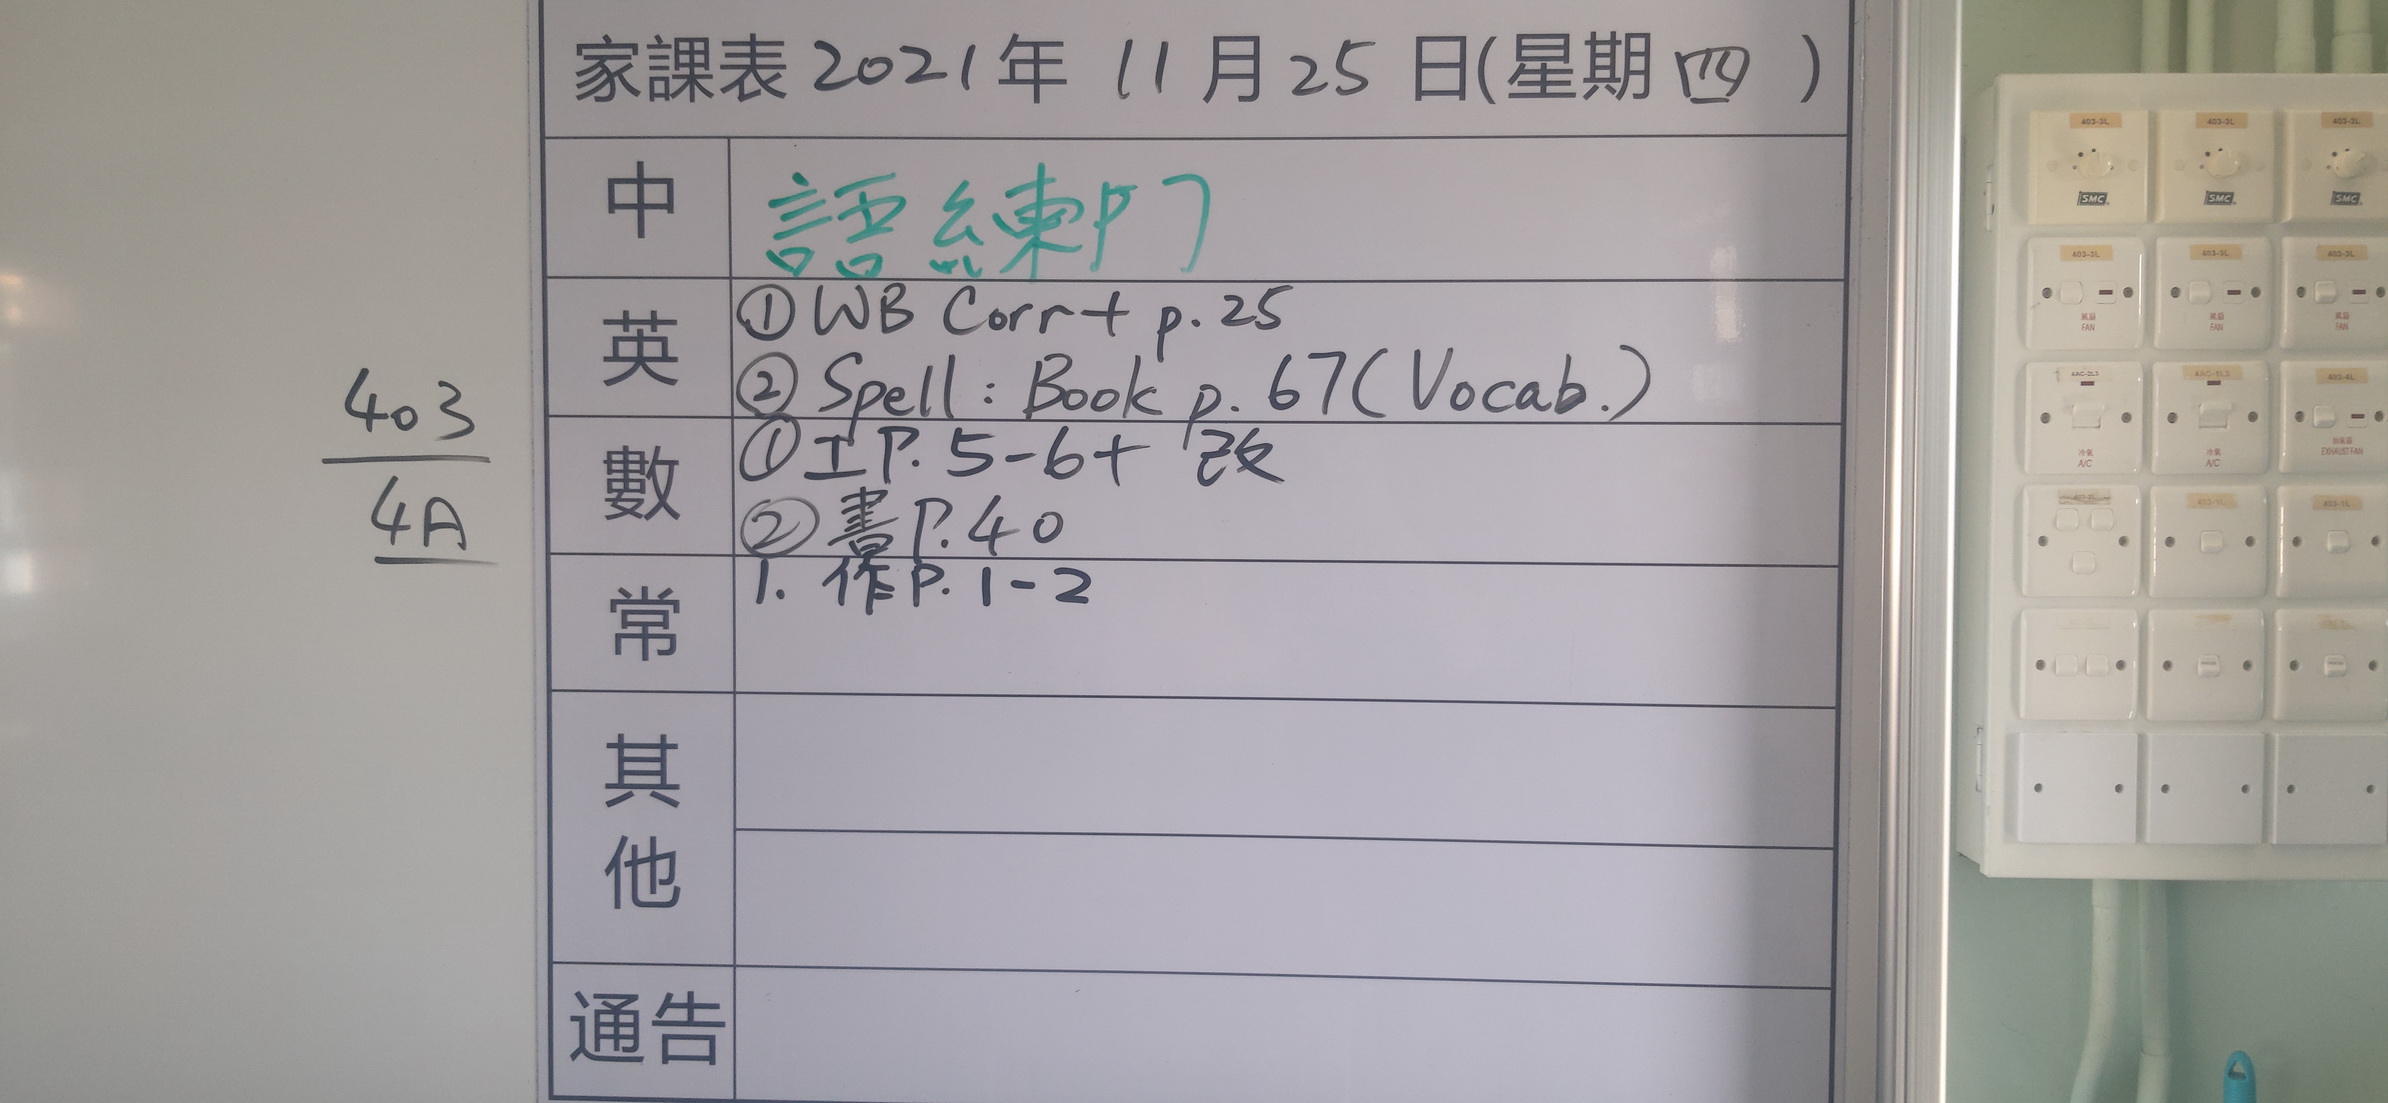 家課表 2021年 11月25日(星期四)
中 語練P7
英 ① WB Corr+ p.25
② Spell: Book p.67(Vocab.)
數 ① 工P.5-6+改
② 書P.40
常 1. 作P.1-2
其他
通告
403
4A
403-3L 403-3L 403-3L
SMC SMC SMC
403-3L 403-3L 403-3L
風扇 風扇 風扇
FAN FAN FAN
AAC-2L3 AAC-1L3 403-4L
冷氣 冷氣 抽氣扇
A/C A/C EXHAUST FAN
403-1L 403-1L